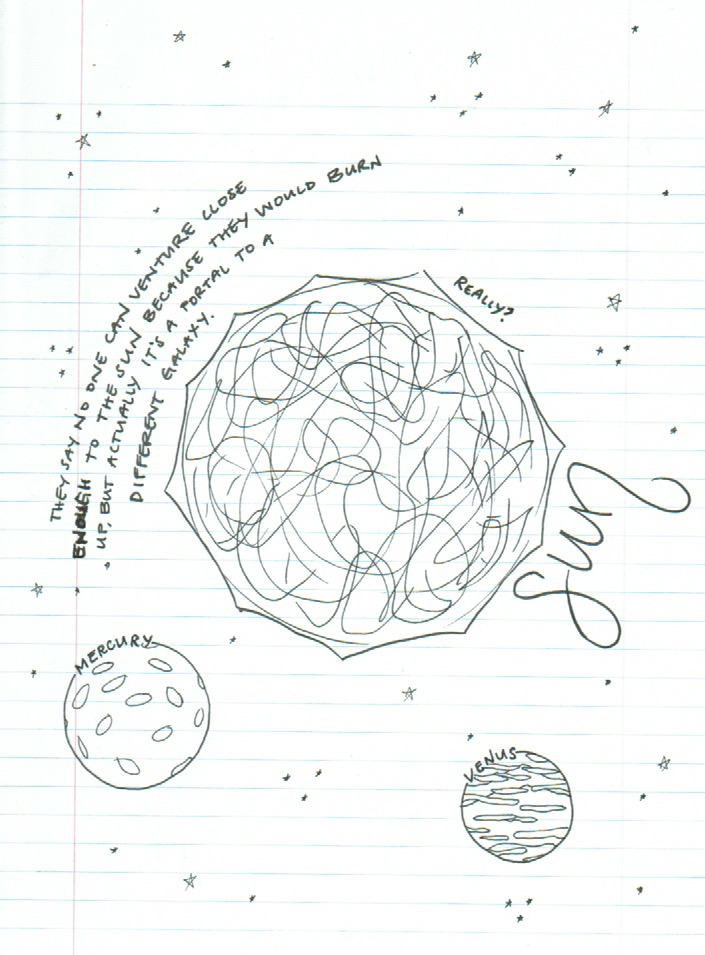 THEY SAY NO ONE CAN VENTURE CLOSE
ENOUGH TO THE SUN BECAUSE THEY WOULD BURN
UP, BUT ACTUALLY IT'S A PORTAL TO A
DIFFERENT GALAXY.
REALLY?
Sun
MERCURY
VENUS